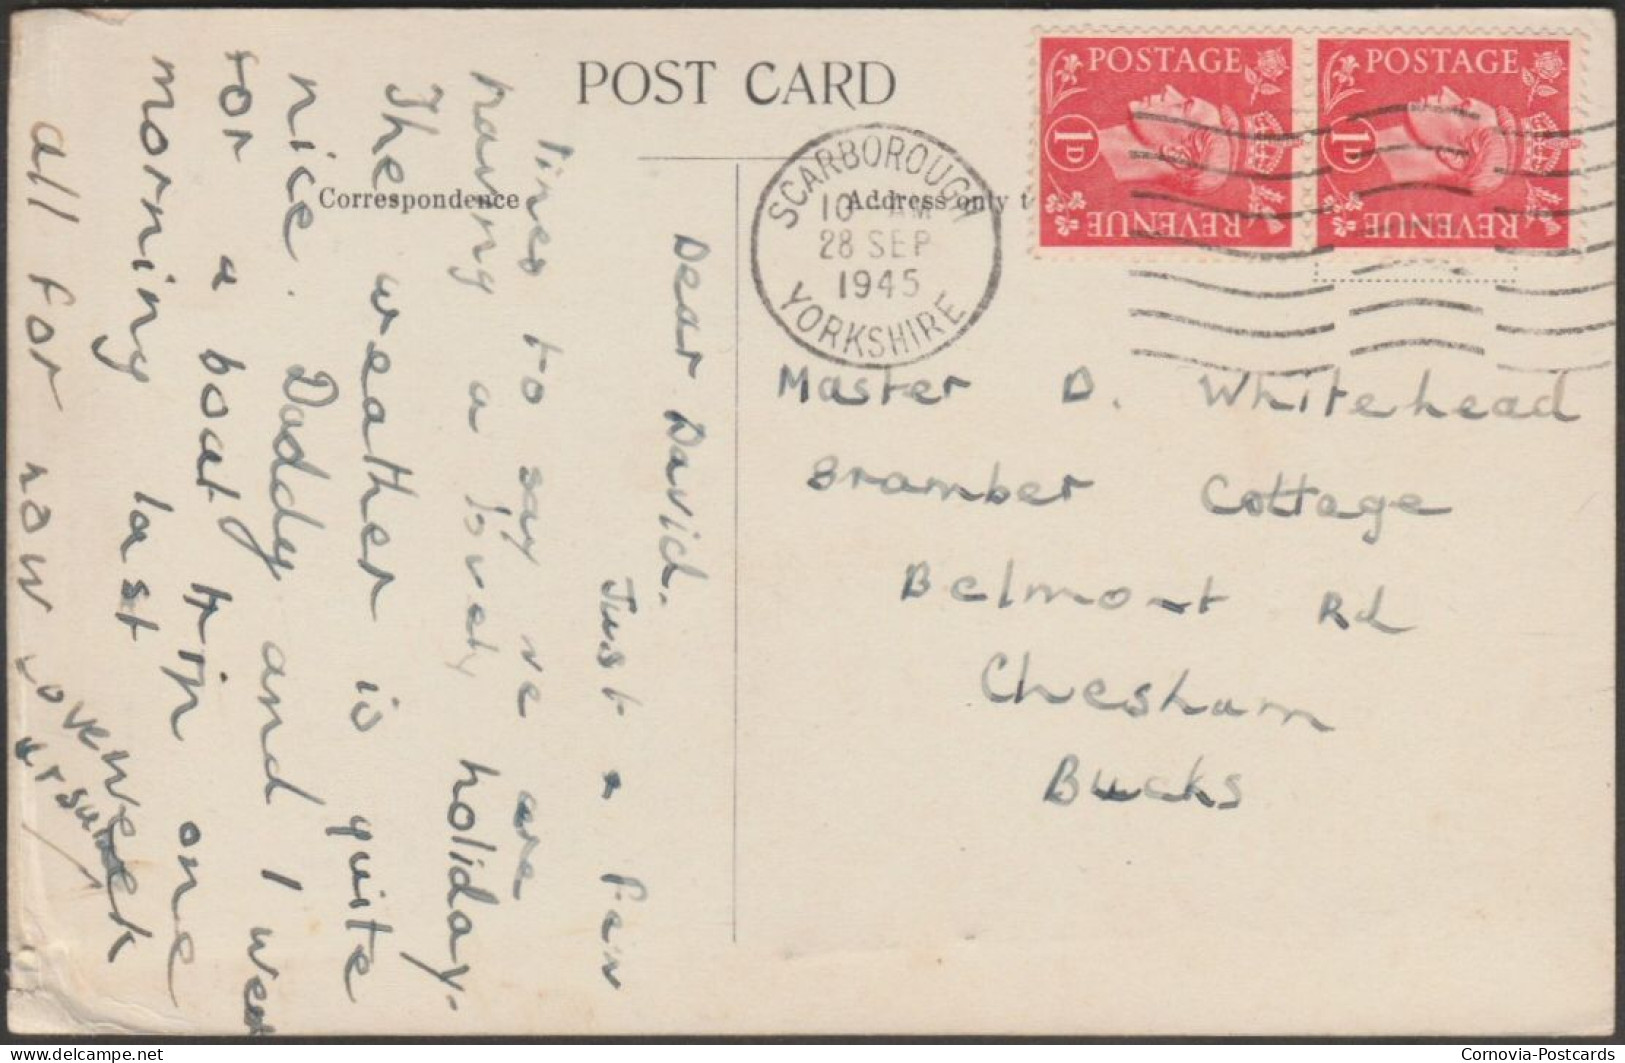 POST CARD
Correspondence
Address only t
SCARBOROUGH
10 - AM
28 SEP
1945
YORKSHIRE
POSTAGE
1D
REVENUE
POSTAGE
1D
REVENUE
Master D. Whitehead
Bramber Cottage
Belmont Rd
Chesham
Bucks
Dear David.
Just a few
lines to say we are
having a lovely holiday.
The weather is quite
nice. Daddy and I went
for a boat trip one
morning last week
all for now love
Cornovia-Postcards